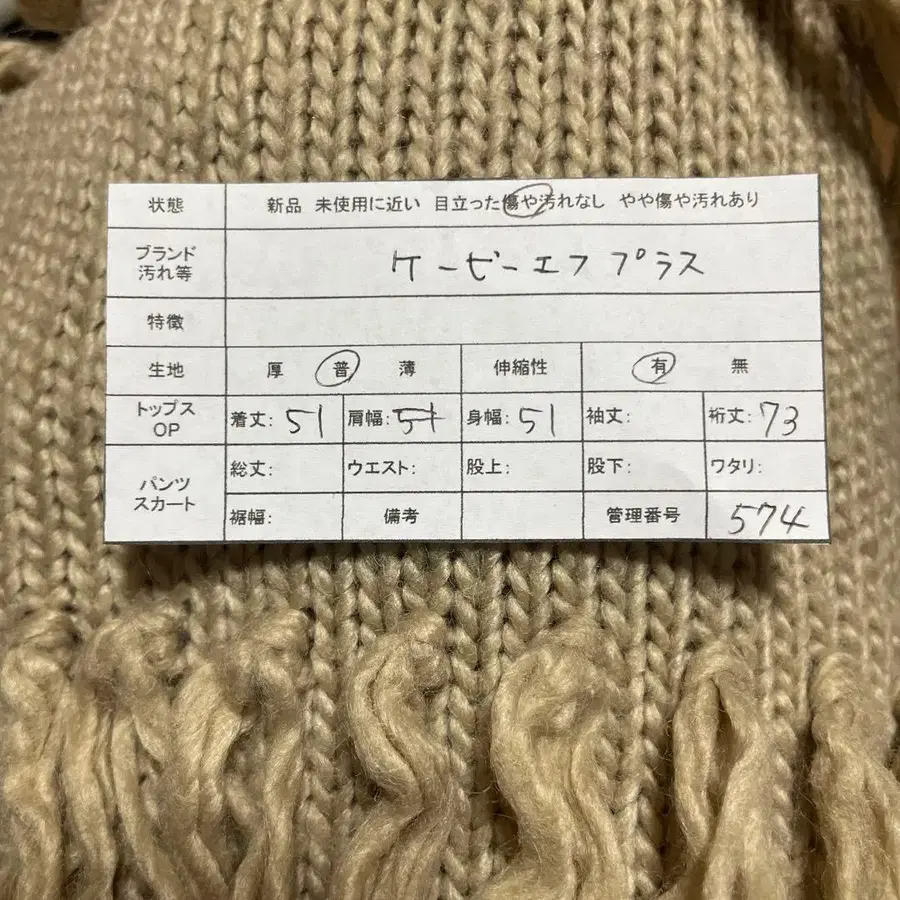 状態 新品 未使用に近い 目立った傷や汚れなし やや傷や汚れあり
ブランド
汚れ等
ケービーエフプラス
特徴
生地 厚 普 薄 伸縮性 有 無
トップス
OP
着丈: 51 肩幅: 51 身幅: 51 袖丈: 裄丈: 73
パンツ
スカート
総丈: ウエスト: 股上: 股下: ワタリ:
裾幅: 備考 管理番号 574